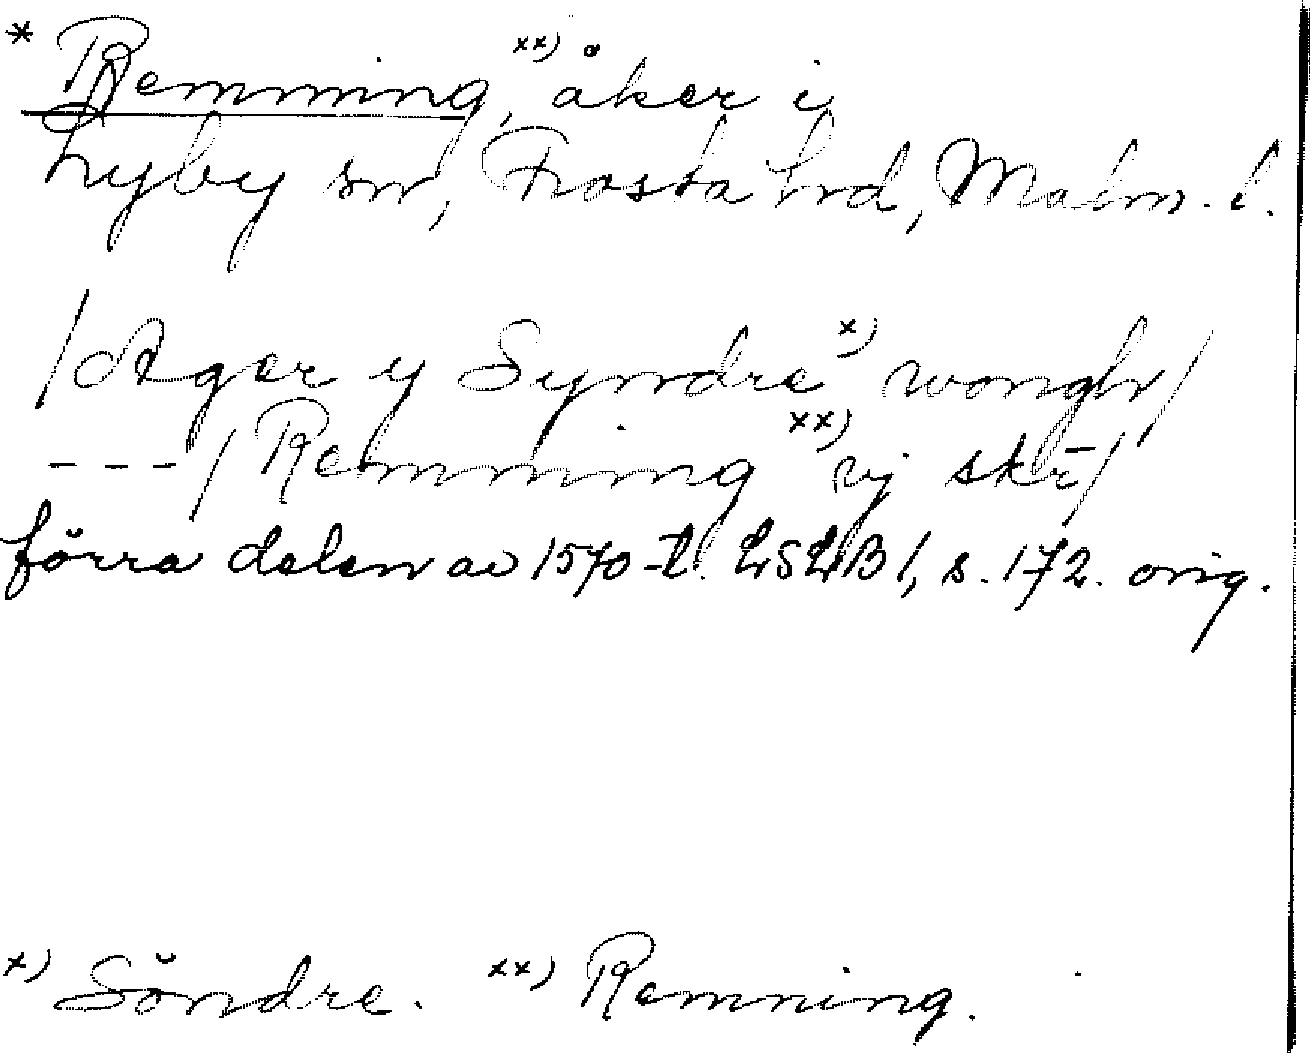 * Remming,xx) åker i
Lyby sn, Frosta hd, Malm. l.
/Ager y Syndrex) wongh/
---/Remmingxx) vj skr̄/
förra delen av 1570-t. LSLB 1, s. 172. orig.
x) Söndre. xx) Remning.